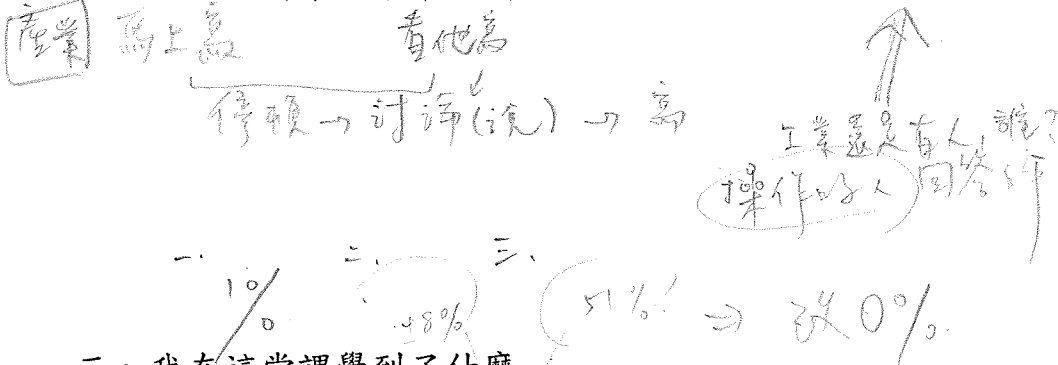 產業 馬上寫 看他寫
停頓→討論(說)→寫
工業還是有人,誰?
操作的人 回答師
一. 二. 三.
1% 48% 51%! ⇒ 改0%
二、我在這堂課學到了什麼